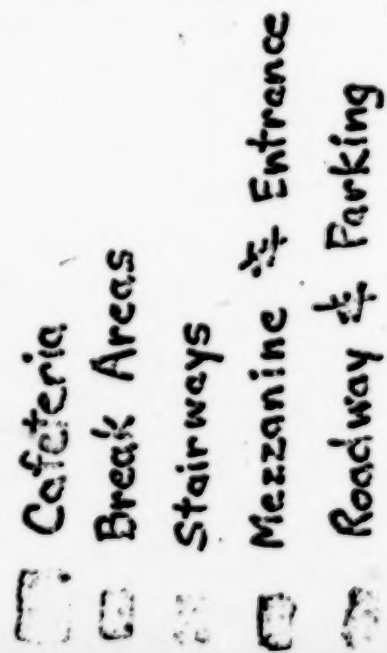 Cafeteria
Break Areas
Stairways
Mezzanine & Entrance
Roadway & Parking